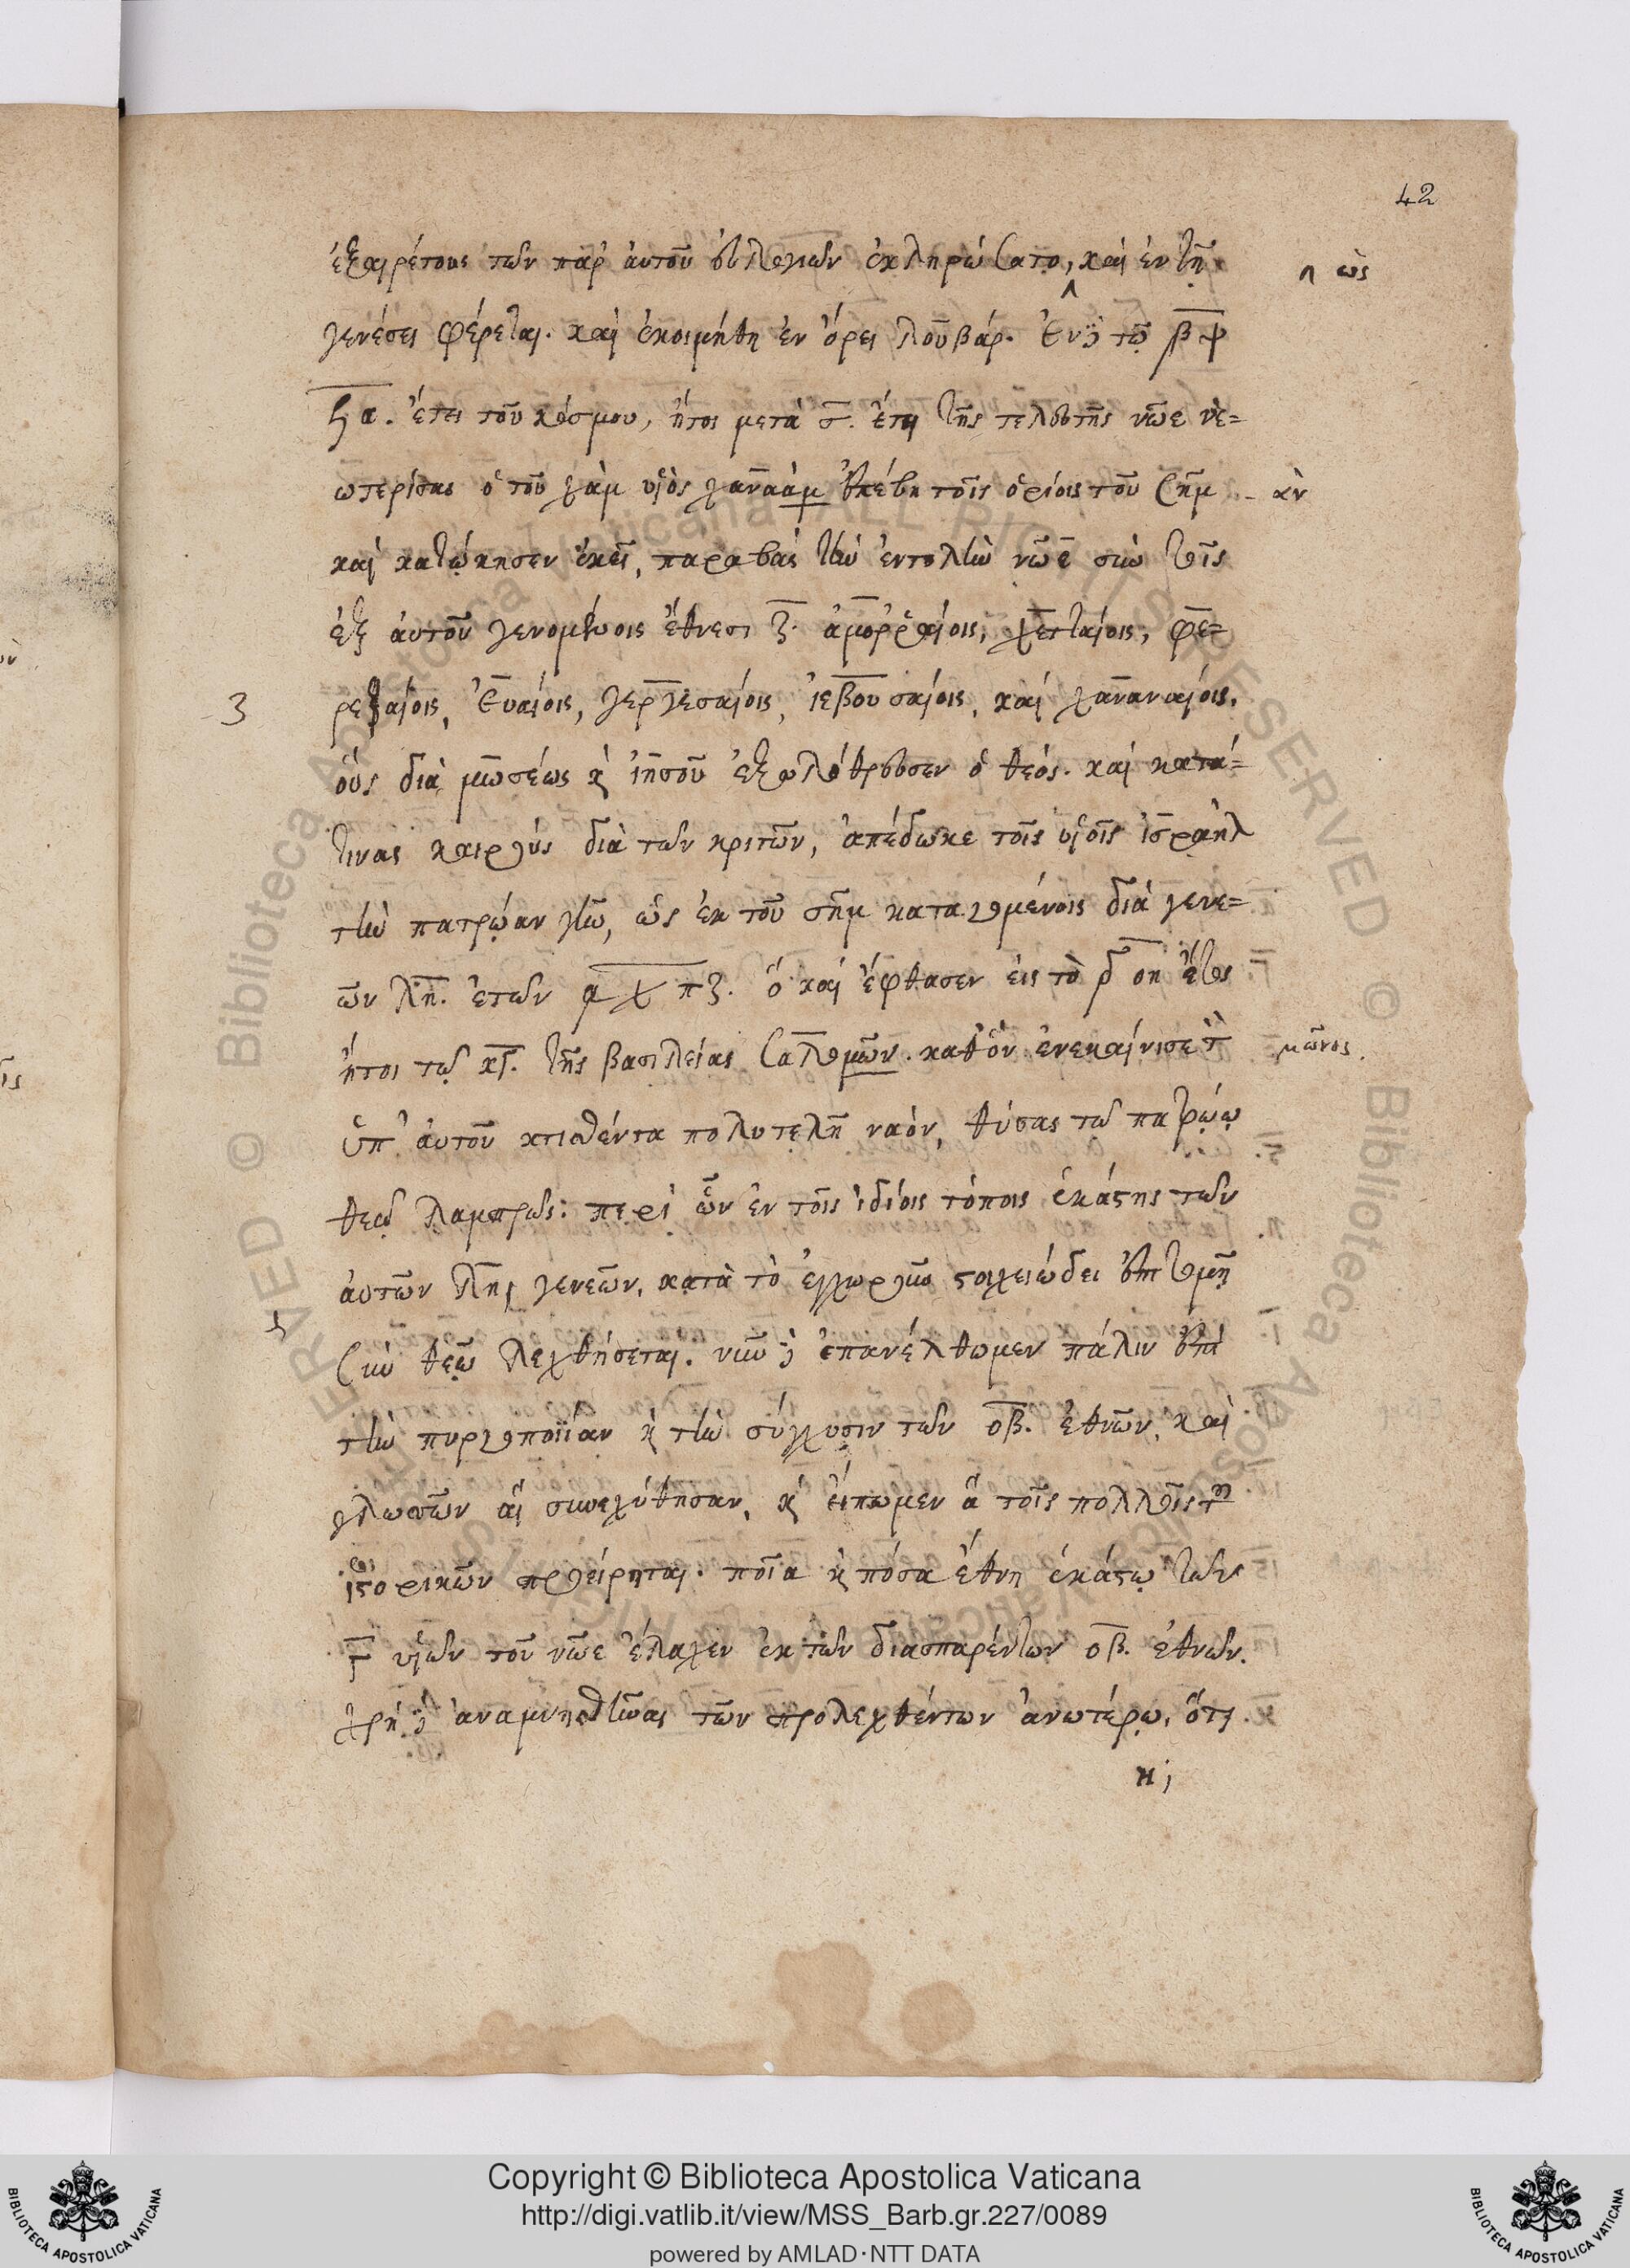 42
ἐξαιρέτους τῶν παρ' αὐτοῦ εὐλογιῶν ἐκληρώσατο, καὶ ἐν τῇ
∧ ὡς
γενέσει φέρεται. καὶ ἐκοιμήθη ἐν ὄρει λουβάρ. Ἐν δὲ τῷ βψ
ϟα. ἔτει τοῦ κόσμου, ἤτοι μετὰ σ. ἔτη τῆς τελευτῆς νῶε νε=
ωτερίσας ὁ τοῦ χὰμ υἱὸς χαναὰμ ἐπέβη τοῖς ὁρίοις τοῦ σῆμ
- ὰν
καὶ κατῴκησεν ἐκεῖ, παραβὰς τὴν ἐντολὴν νῶε σὺν τοῖς
ἐξ αὐτοῦ γενομένοις ἔθνεσι ζ. ἀμορραίοις, χετταίοις, φε=
3
ρεξαίοις, Ἐυαίοις, γεργεσαίοις, ἰεβουσαίοις, καὶ χαναναίοις.
οὓς διὰ μωσέως κ ἰησοῦ ἐξωλόθρευσεν ὁ θεός. καὶ κατά=
τινας καιροὺς διὰ τῶν κριτῶν, ἀπέδωκε τοῖς υἱοῖς ἰσραὴλ
τὴν πατρῴαν γῆν, ὡς ἐκ τοῦ σῆμ καταγομένοις διὰ γενε=
ῶν λη. ἐτῶν αχπζ. ὃ καὶ ἔφθασεν εἰς τὸ δ οη ἔτος
ἤτοι τῷ κγ. τῆς βασιλείας σαλομῶν. καθ' ὃν ἐνεκαίνισε τ
μῶνος.
ὑπ' αὐτοῦ κτισθέντα πολυτελῆ ναὸν, θύσας τῷ πατρῴῳ
θεῷ λαμπρῶς: περὶ ὧν ἐν τοῖς ἰδίοις τόποις ἑκάστης τῶν
αὐτῶν λη γενεῶν, κατὰ τὸ ἐγχωροῦν στοιχειώδει ἐπιτομῇ
σὺν θεῷ λεχθήσεται. νῦν δὲ ἐπανέλθωμεν πάλιν ἐπὶ
τὴν πυργοποιΐαν κ τὴν σύγχυσιν τῶν οβ. ἐθνῶν, καὶ
γλωσσῶν αἳ συνεχύθησαν, κ εἴπωμεν ἃ τοῖς πολλοῖς τῶν
ἱστορικῶν προείρηται. ποῖα κ πόσα ἔθνη ἑκάστῳ τῶν
γ υἱῶν τοῦ νῶε ἔλαχεν ἐκ τῶν διασπαρέντων οβ. ἐθνῶν.
χρὴ δὲ ἀναμνησθέντας τῶν προλεχθέντων ἀνωτέρω, ὅτι
κ;
Copyright © Biblioteca Apostolica Vaticana
http://digi.vatlib.it/view/MSS_Barb.gr.227/0089
powered by AMLAD·NTT DATA